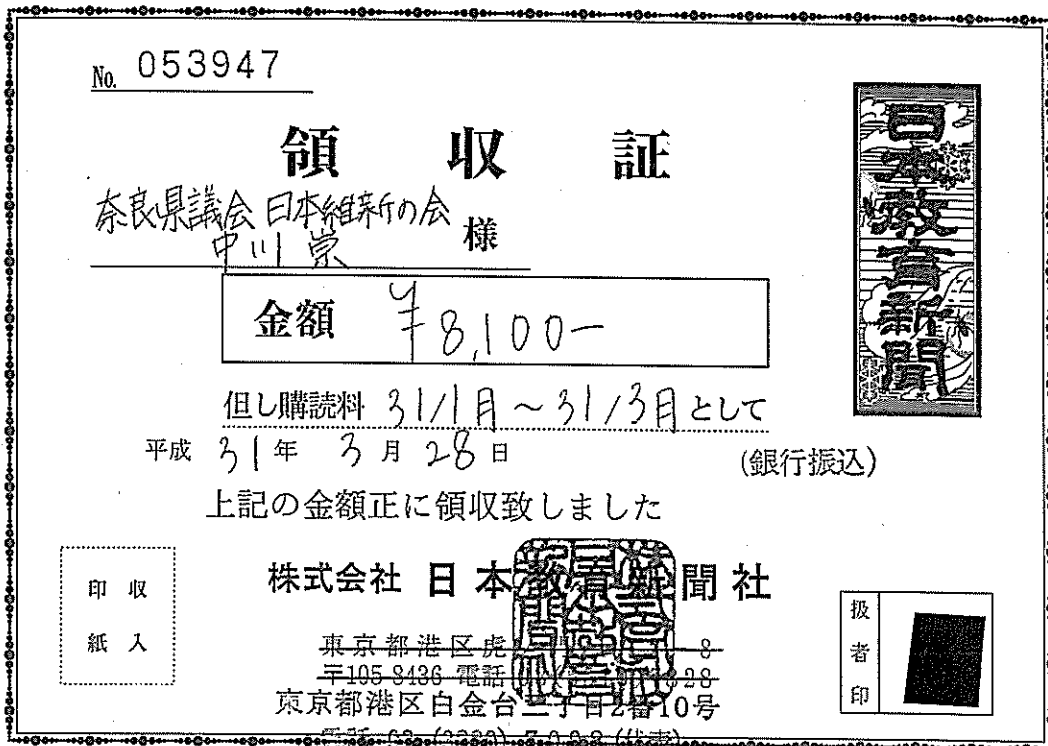 No. 053947
領収証
奈良県議会 日本維新の会
中川 崇 様
金額 ¥8,100-
但し購読料 31/1月～31/3月として
平成 31年 3月 28日
(銀行振込)
上記の金額正に領収致しました
日本教育新聞
株式会社 日本教育新聞社
東京都港区虎 8
〒105-8436 電話 328
東京都港区白金台二丁目2番10号
収入
印紙
扱者印